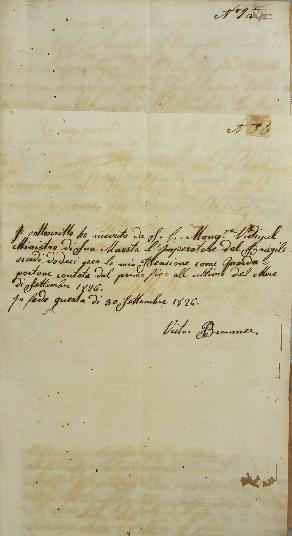 Nro 9
Nro 9
Io sottoscritto ho ricevuto da S. E. Monsgre Vidigal
Ministro di Sua Maestà l'Imperatore del Brasile
scudi dodeci per la mia Pensione come Guarda-
portone contata dal primo fin all ultimo del Mese
di Settembre 1826.
In fede questo di 30 Settembre 1826.
Victor Brunner.